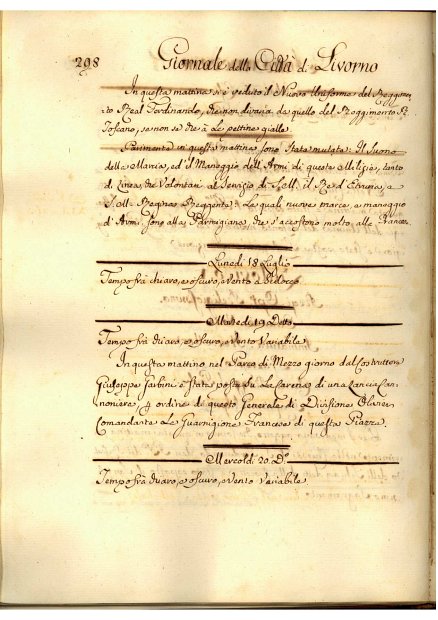 298 Giornale della Città di Livorno
In questa mattina si è veduto il Nuovo Uniforme del Reggimen-
to Real Ferdinando, che non divaria da quello del Reggimento R.
Toscano, se non se che à Le pettine gialle.
Parimente in questa mattina sono State mutate: Il Suono
della Marcia, ed il Maneggio dell'Armi di queste Milizie, tanto
di Linea, che Volontari al Servizio di S. M. il Re d'Etruria, e
S. M. Regina Reggente: Le quali nuove marce, e maneggio
d'Armi sono alla Parmigiana, che s'accostono molto alle Francesi.
Lunedì 18 Luglio
Tempo frà chiaro, e oscuro, e vento a Scilocco
Martedì 19 Detto
Tempo frà chiaro, e oscuro, e vento Variabile
In questa mattina nel Parco di Mezzo giorno dal Costruttore
Giuseppe è stata posta Sù La Carena di una Lancia Can-
noniera, p ordine di questo Generale di Divisione
Comandante La Guarnigione Francese di questa Piazza.
Mercoldì 20 Do
Tempo frà chiaro, e oscuro, e vento Variabile